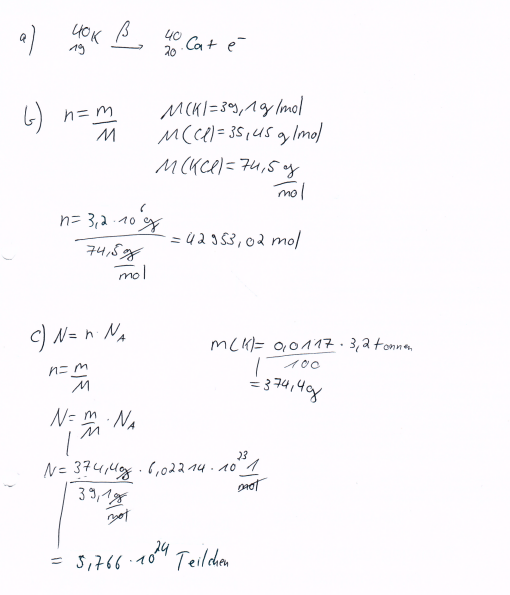 a) ⁴⁰₁₉K —β→ ⁴⁰₂₀Ca + e⁻
b) n = m/M M(K) = 39,1 g/mol
M(Cl) = 35,45 g/mol
M(KCl) = 74,5 g/mol
n = 3,2 · 10⁶ g / 74,5 g/mol = 42953,02 mol
c) N = n · N_A m(K) = 0,0117/100 · 3,2 tonnen
n = m/M = 374,4g
N = m/M · N_A
N = 374,4g / 39,1 g/mol · 6,02214 · 10²³ 1/mol
= 5,766 · 10²⁴ Teilchen